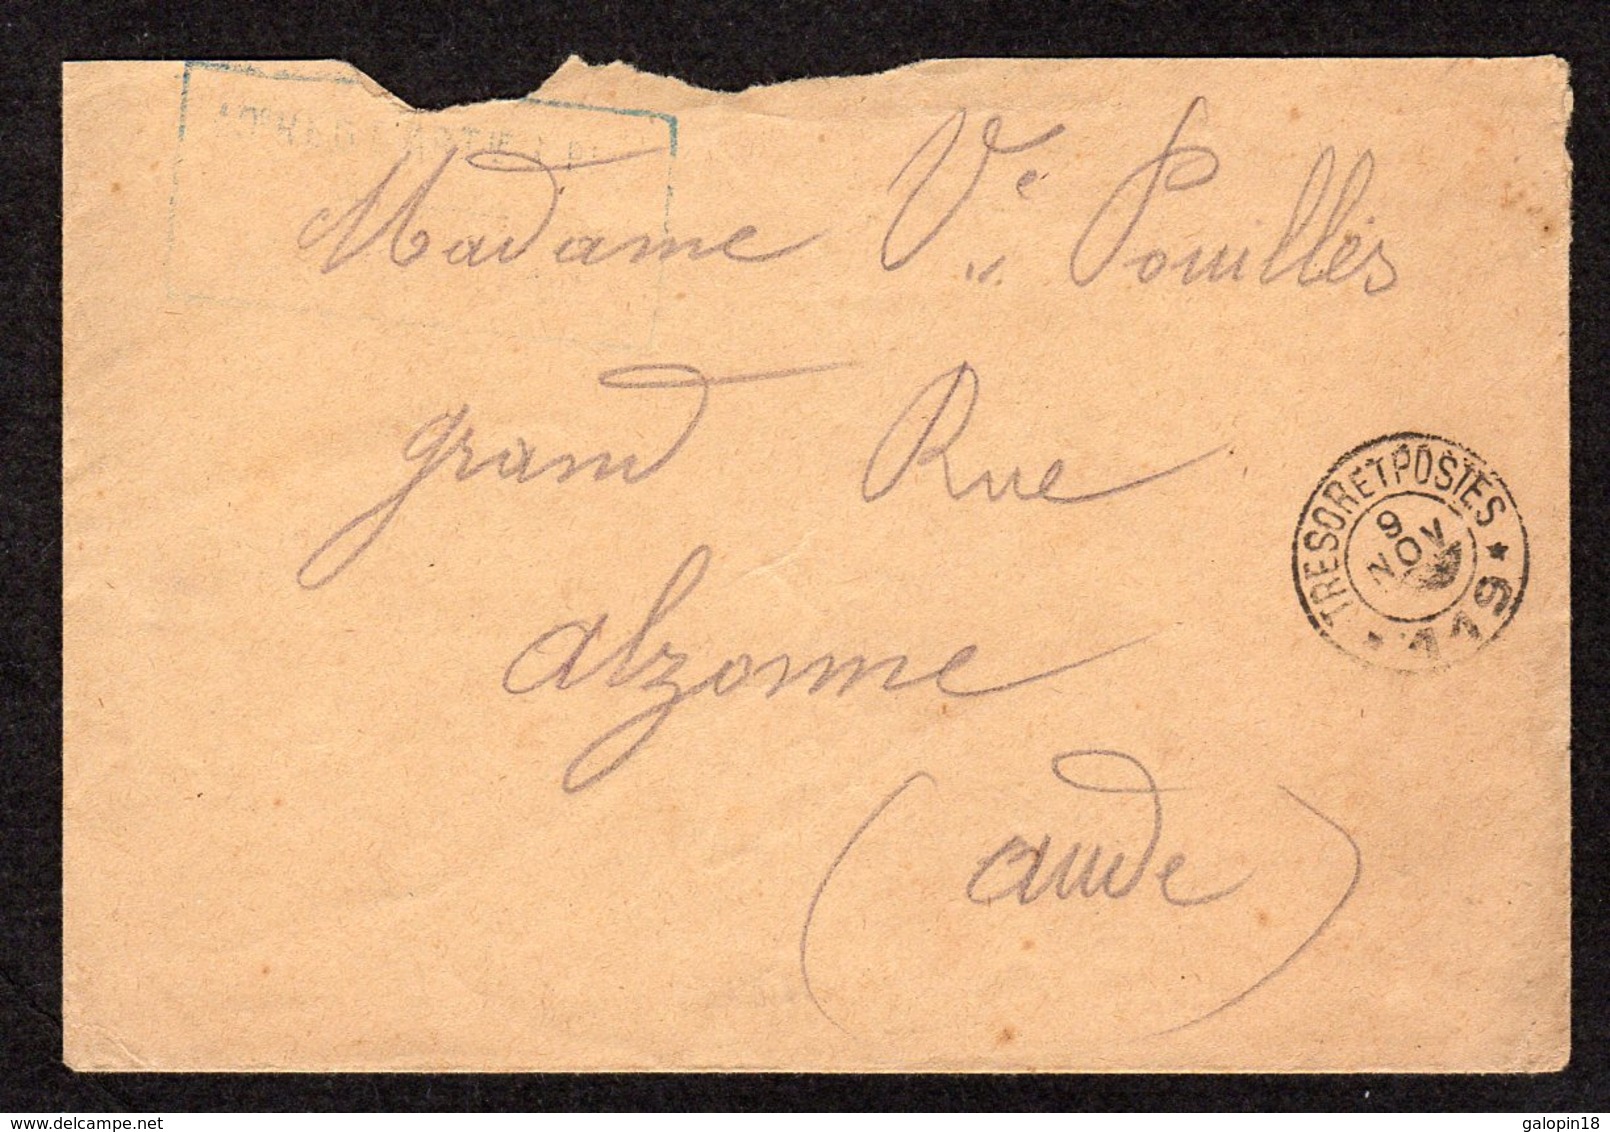 Madame Vᵉ Pouillès
grand Rue
alzonne
(aude)
TRESOR ET POSTES
9
NOV
delcampe.net
galopin18